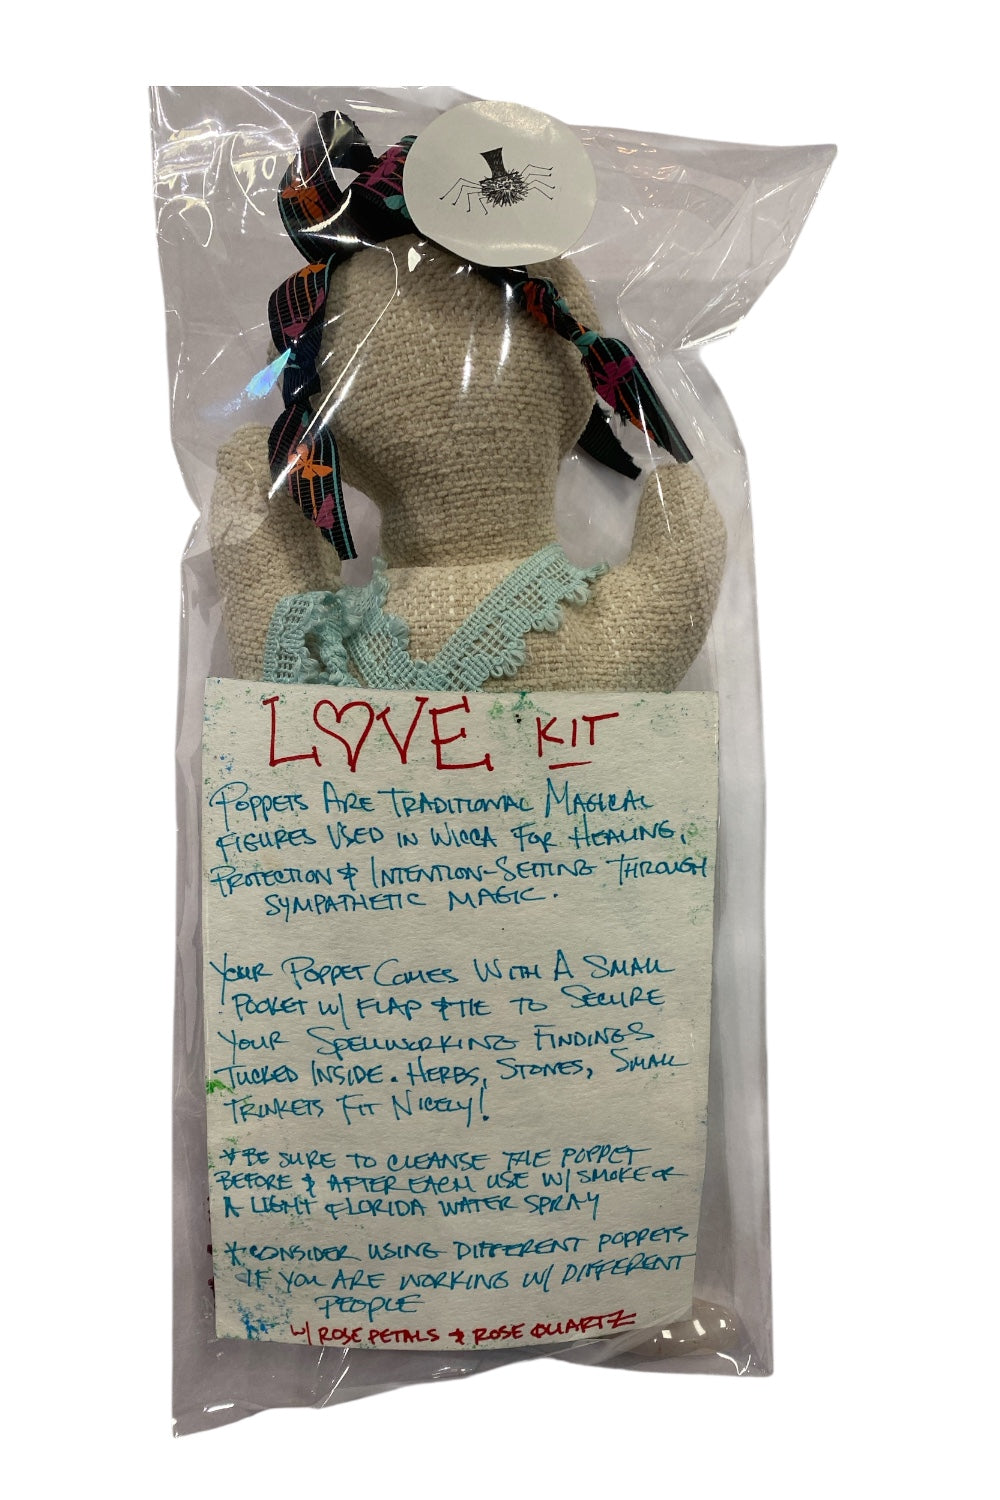 LOVE KIT
POPPETS ARE TRADITIONAL MAGICAL
FIGURES USED IN WICCA FOR HEALING,
PROTECTION & INTENTION-SETTING THROUGH
SYMPATHETIC MAGIC.
YOUR POPPET COMES WITH A SMALL
POCKET W/ FLAP & TIE TO SECURE
YOUR SPELLWORKING FINDINGS
TUCKED INSIDE. HERBS, STONES, SMALL
TRINKETS FIT NICELY!
*BE SURE TO CLEANSE THE POPPET
BEFORE & AFTER EACH USE W/ SMOKE OR
A LIGHT FLORIDA WATER SPRAY
*CONSIDER USING DIFFERENT POPPETS
IF YOU ARE WORKING W/ DIFFERENT
PEOPLE
W/ ROSE PETALS & ROSE QUARTZ